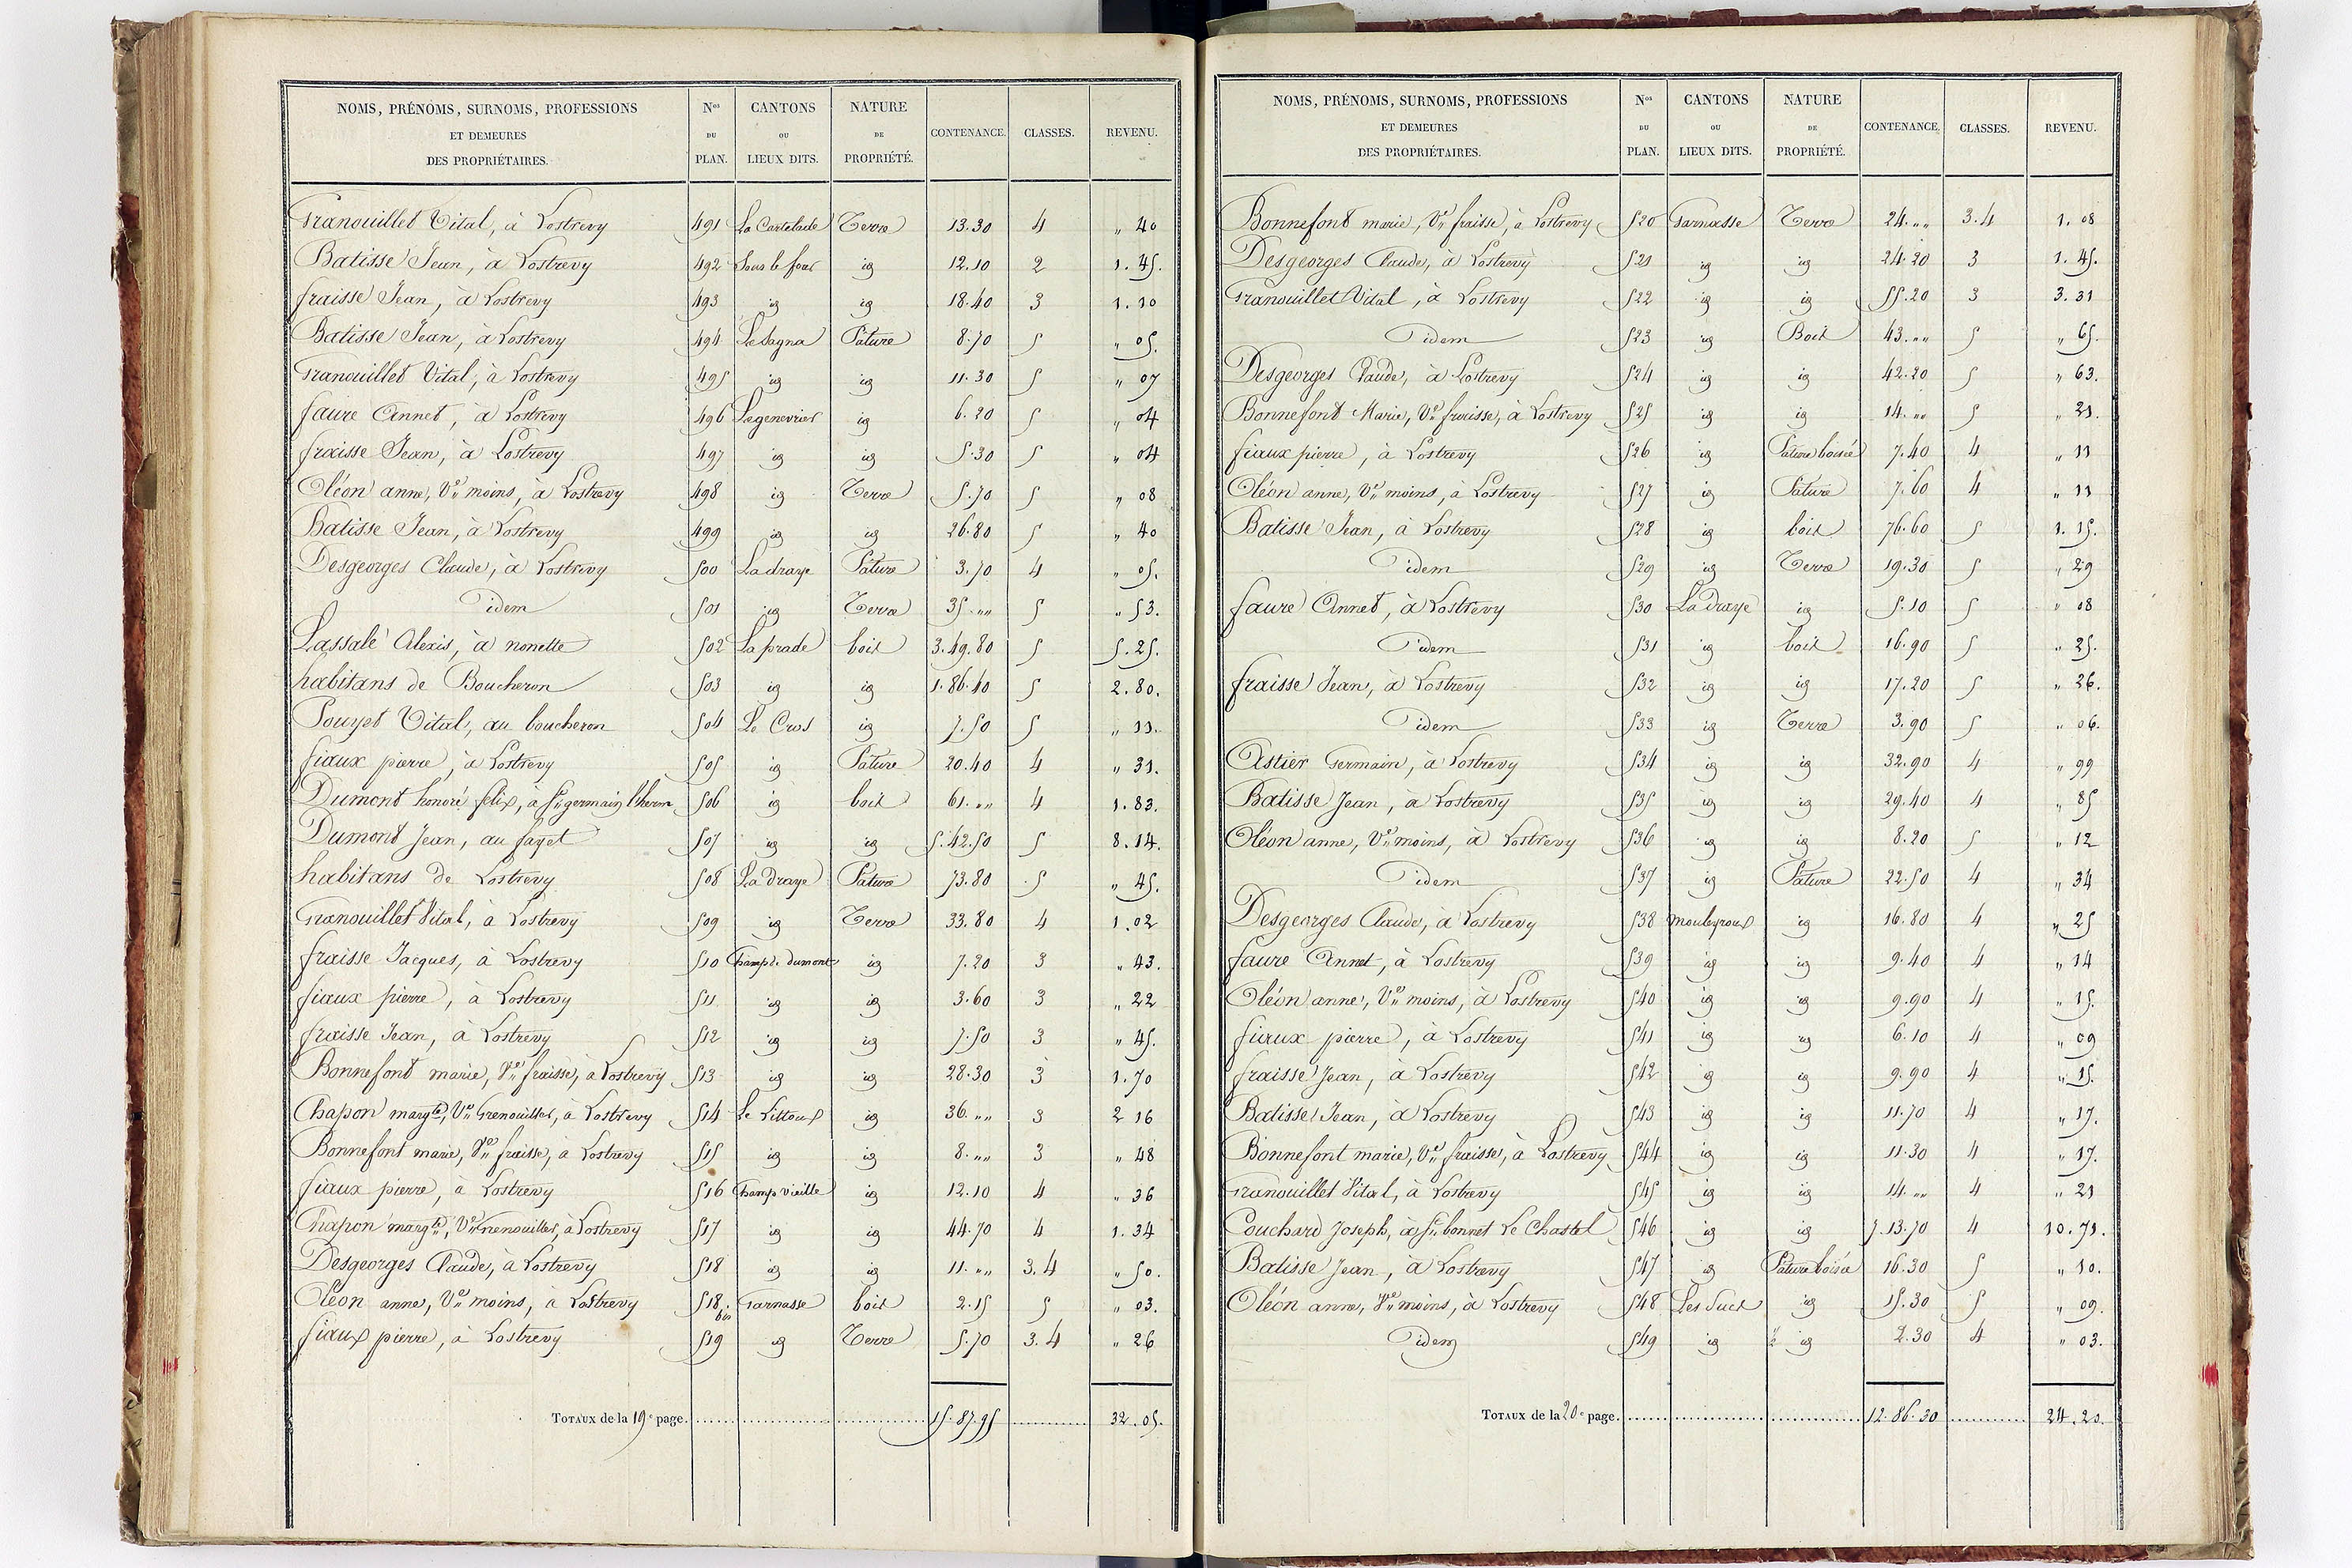 NOMS, PRÉNOMS, SURNOMS, PROFESSIONS ET DEMEURES DES PROPRIÉTAIRES. Nos DU PLAN. CANTONS OU LIEUX DITS. NATURE DE PROPRIÉTÉ. CONTENANCE. CLASSES. REVENU.
Granouillet Vital, à Lostrevy 491 La Cartelade Terre 13.30 4 " 40
Batisse Jean, à Lostrevy 492 Sous le four id 12.10 2 1.45.
fraisse Jean, à Lostrevy 493 id id 18.40 3 1.10
Batisse Jean, à Lostrevy 494 Le Sagna Pature 8.70 5 " 05.
Granouillet Vital, à Lostrevy 495 id id 11.30 5 " 07
faure Annet, à Lostrevy 496 Le genevrier id 6.20 5 " 04
fraisse Jean, à Lostrevy 497 id id 5.30 5 " 04
Oléon anne, Ve moins, à Lostrevy 498 id Terre 5.70 5 " 08
Batisse Jean, à Lostrevy 499 id id 26.80 5 " 40
Desgeorges Claude, à Lostrevy 500 La draye Pature 3.70 4 " 05.
idem 501 id Terre 35."" 5 " 53.
Lassale Alexis, à nonette 502 La prade bois 3.49.80 5 5.25.
habitans de Boucheron 503 id id 1.86.40 5 2.80.
Pouyet Vital, au boucheron 504 Le Cros id 7.50 5 " 11.
fiaux pierre, à Lostrevy 505 id Pature 20.40 4 " 31.
Dumont honoré felix, à St germain l'herm 506 id bois 61."" 4 1.83.
Dumont Jean, au fayet 507 id id 5.42.50 5 8.14.
habitans de Lostrevy 508 La Draye Pature 73.80 5 " 45.
Granouillet Vital, à Lostrevy 509 id Terre 33.80 4 1.02
fraisse Jacques, à Lostrevy 510 Champ de dumont id 7.20 3 " 43.
fiaux pierre, à Lostrevy 511 id id 3.60 3 " 22
fraisse Jean, à Lostrevy 512 id id 7.50 3 " 45.
Bonnefont marie, Ve fraisse, à Lostrevy 513 id id 28.30 3 1.70
Chapon margte, Ve Grenouillet, à Lostrevy 514 Le Littoux id 36."" 3 2 16
Bonnefont marie, Ve fraisse, à Lostrevy 515 id id 8."" 3 " 48
fiaux pierre, à Lostrevy 516 Champ vieille id 12.10 4 " 36
Chapon margte, Ve Grenouillet, à Lostrevy 517 id id 44.70 4 1.34
Desgeorges Claude, à Lostrevy 518 id id 11."" 3.4 " 50.
Oléon anne, Ve moins, à Lostrevy 518. bis Garnasse bois 2.15 5 " 03.
fiaux pierre, à Lostrevy 519 id Terre 5.70 3.4 " 26
TOTAUX de la 19e page. 15.87.95 32.05.
NOMS, PRÉNOMS, SURNOMS, PROFESSIONS ET DEMEURES DES PROPRIÉTAIRES. Nos DU PLAN. CANTONS OU LIEUX DITS. NATURE DE PROPRIÉTÉ. CONTENANCE. CLASSES. REVENU.
Bonnefont marie, Ve fraisse, à Lostrevy 520 Garnasse Terre 24."" 3.4 1.08
Desgeorges Claude, à Lostrevy 521 id id 24.20 3 1.45.
Granouillet Vital, à Lostrevy 522 id id 55.20 3 3.31
idem 523 id Bois 43."" 5 " 65.
Desgeorges Claude, à Lostrevy 524 id id 42.20 5 " 63.
Bonnefont Marie, Ve fraisse, à Lostrevy 525 id id 14."" 5 " 21.
fiaux pierre, à Lostrevy 526 id Pature boisée 7.40 4 " 11
Oléon anne, Ve moins, à Lostrevy 527 id Pature 7.60 4 " 11
Batisse Jean, à Lostrevy 528 id bois 76.60 5 1.15.
idem 529 id Terre 19.30 5 " 29
faure Annet, à Lostrevy 530 La Draye id 5.10 5 " 08
idem 531 id bois 16.90 5 " 25.
fraisse Jean, à Lostrevy 532 id id 17.20 5 " 26.
idem 533 id Terre 3.90 5 " 06.
Astier Germain, à Lostrevy 534 id id 32.90 4 " 99
Batisse Jean, à Lostrevy 535 id id 29.40 4 " 85
Oléon anne, Ve moins, à Lostrevy 536 id id 8.20 5 " 12
idem 537 id Pature 22.50 4 " 34
Desgeorges Claude, à Lostrevy 538 mouleyroux id 16.80 4 " 25
faure Annet, à Lostrevy 539 id id 9.40 4 " 14
Oléon anne, Ve moins, à Lostrevy 540 id id 9.90 4 " 15.
fiaux pierre, à Lostrevy 541 id id 6.10 4 " 09
fraisse Jean, à Lostrevy 542 id id 9.90 4 " 15.
Batisse Jean, à Lostrevy 543 id id 11.70 4 " 17.
Bonnefont marie, Ve fraisse, à Lostrevy 544 id id 11.30 4 " 17.
Granouillet Vital, à Lostrevy 545 id id 14."" 4 " 21
Couchard Joseph, à St bonnet Le Chastel 546 id id 7.13.70 4 10.71.
Batisse Jean, à Lostrevy 547 id Pature boisée 16.30 5 " 10.
Oléon anne, Ve moins, à Lostrevy 548 Les Sucs id 15.30 5 " 09.
idem 549 id id 2.30 4 " 03.
TOTAUX de la 20e page. 12.86.30 24.20.